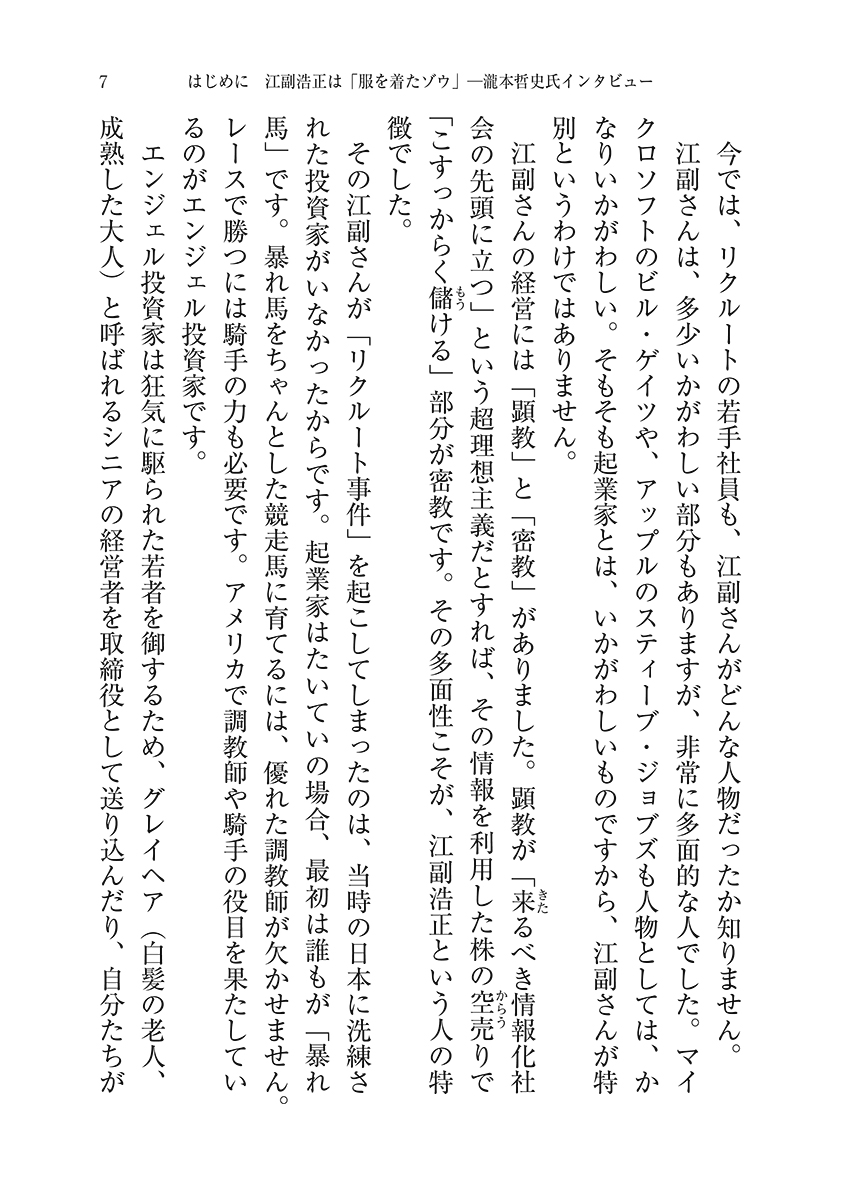 7
はじめに　江副浩正は「服を着たゾウ」―瀧本哲史氏インタビュー
今では、リクルートの若手社員も、江副さんがどんな人物だったか知りません。
江副さんは、多少いかがわしい部分もありますが、非常に多面的な人でした。マイ
クロソフトのビル・ゲイツや、アップルのスティーブ・ジョブズも人物としては、か
なりいかがわしい。そもそも起業家とは、いかがわしいものですから、江副さんが特
別というわけではありません。
江副さんの経営には「顕教」と「密教」がありました。顕教が「来きたるべき情報化社
会の先頭に立つ」という超理想主義だとすれば、その情報を利用した株の空売からうりで
「こすっからく儲もうける」部分が密教です。その多面性こそが、江副浩正という人の特
徴でした。
その江副さんが「リクルート事件」を起こしてしまったのは、当時の日本に洗練さ
れた投資家がいなかったからです。起業家はたいていの場合、最初は誰もが「暴れ
馬」です。暴れ馬をちゃんとした競走馬に育てるには、優れた調教師が欠かせません。
レースで勝つには騎手の力も必要です。アメリカで調教師や騎手の役目を果たしてい
るのがエンジェル投資家です。
エンジェル投資家は狂気に駆られた若者を御するため、グレイヘア（白髪の老人、
成熟した大人）と呼ばれるシニアの経営者を取締役として送り込んだり、自分たちが